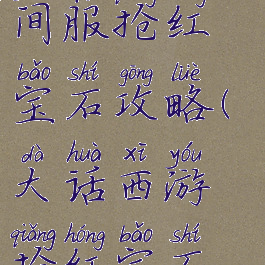 间服抢红
bǎo shí gōng lüè
宝石攻略(
dà huà xī yóu
大话西游
qiǎng hóng bǎo shí
抢红宝石